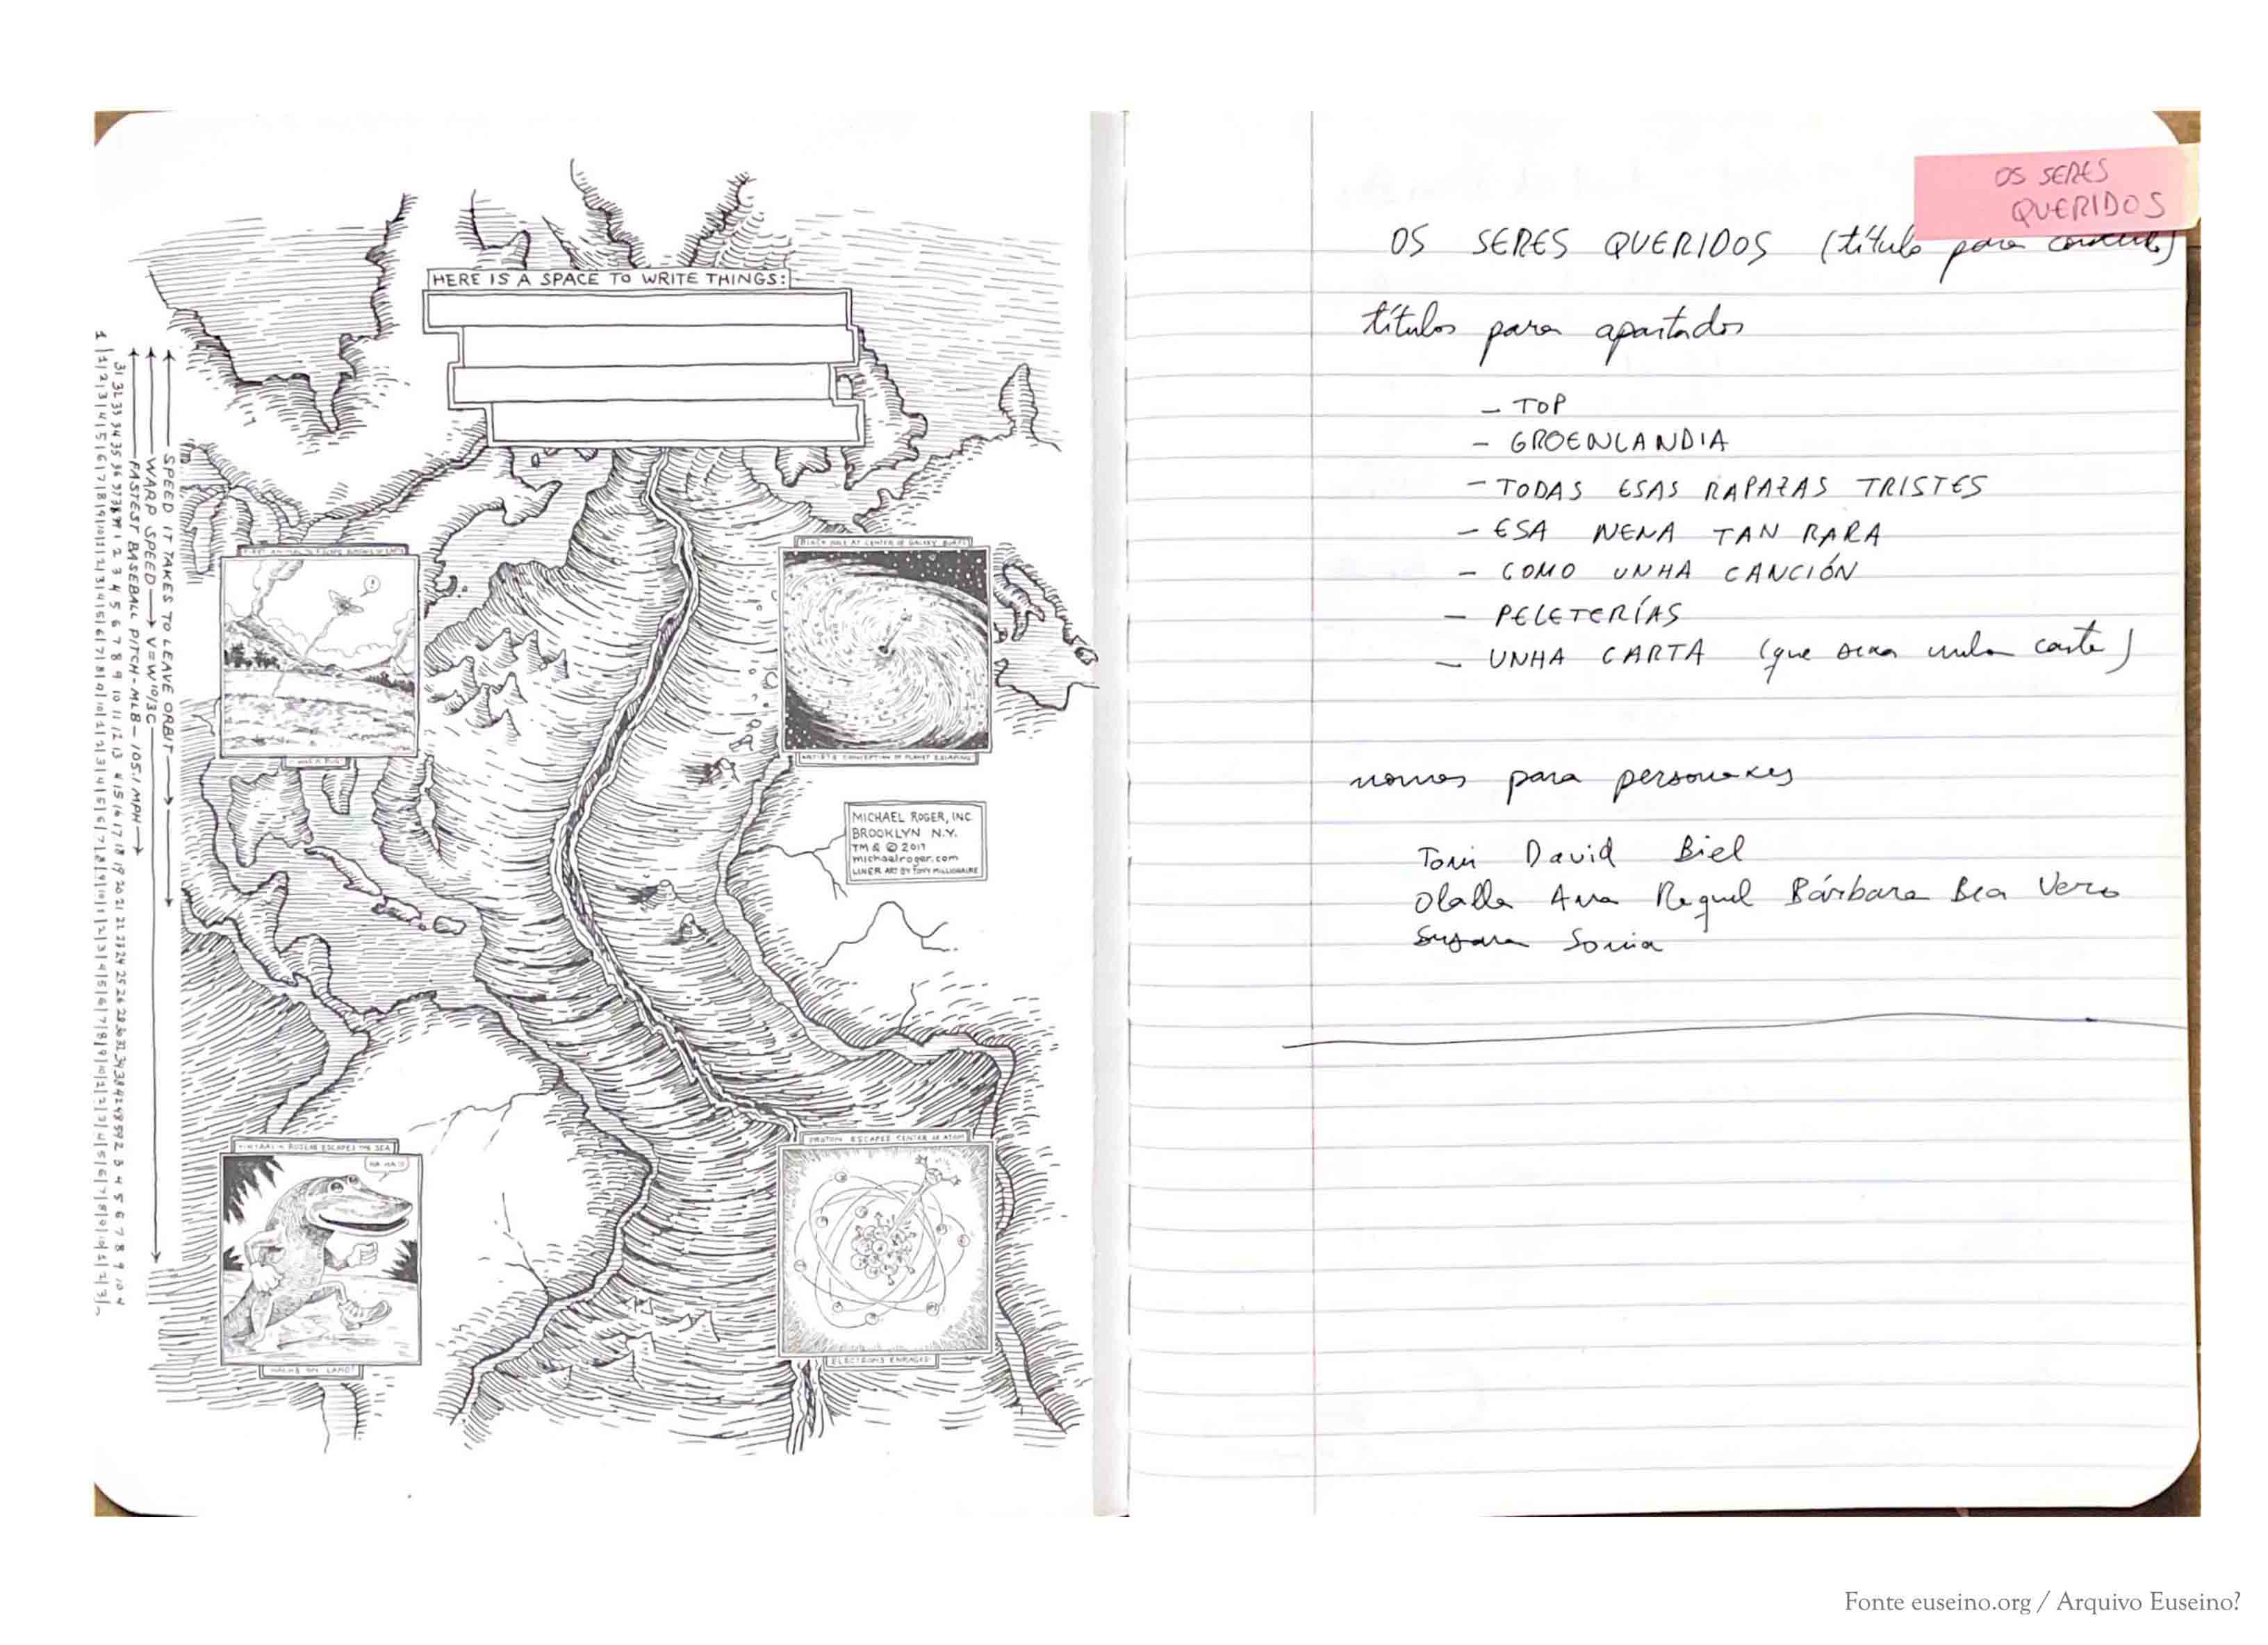 HERE IS A SPACE TO WRITE THINGS:
SPEED IT TAKES TO LEAVE ORBIT
WARP SPEED → V=W10/3C
FASTEST BASEBALL PITCH-MLB-105.1 MPH
BLACK HOLE AT CENTER OF GALAXY BURPS
ARTIST'S CONCEPTION OF PLANET ESCAPING
MICHAEL ROGER, INC
BROOKLYN N.Y.
TM & © 2017
michaelroger.com
LINER ART BY TONY MILLIONAIRE
ESCAPES THE SEA
HA HA!
WALKS ON LAND!
PROTON ESCAPES CENTER OF ATOM
ELECTRONS ENRAGED
OS SERES
QUERIDOS
OS SERES QUERIDOS (título para
títulos para apartados
- TOP
- GROENLANDIA
- TODAS ESAS RAPAZAS TRISTES
- ESA NENA TAN RARA
- COMO UNHA CANCIÓN
- PELETERÍAS
- UNHA CARTA (que sexa unha carta)
nomes para personaxes
Toni David Biel
Olalla Ana Raquel Bárbara Bea Vero
Susana Sonia
Fonte euseino.org / Arquivo Euseino?